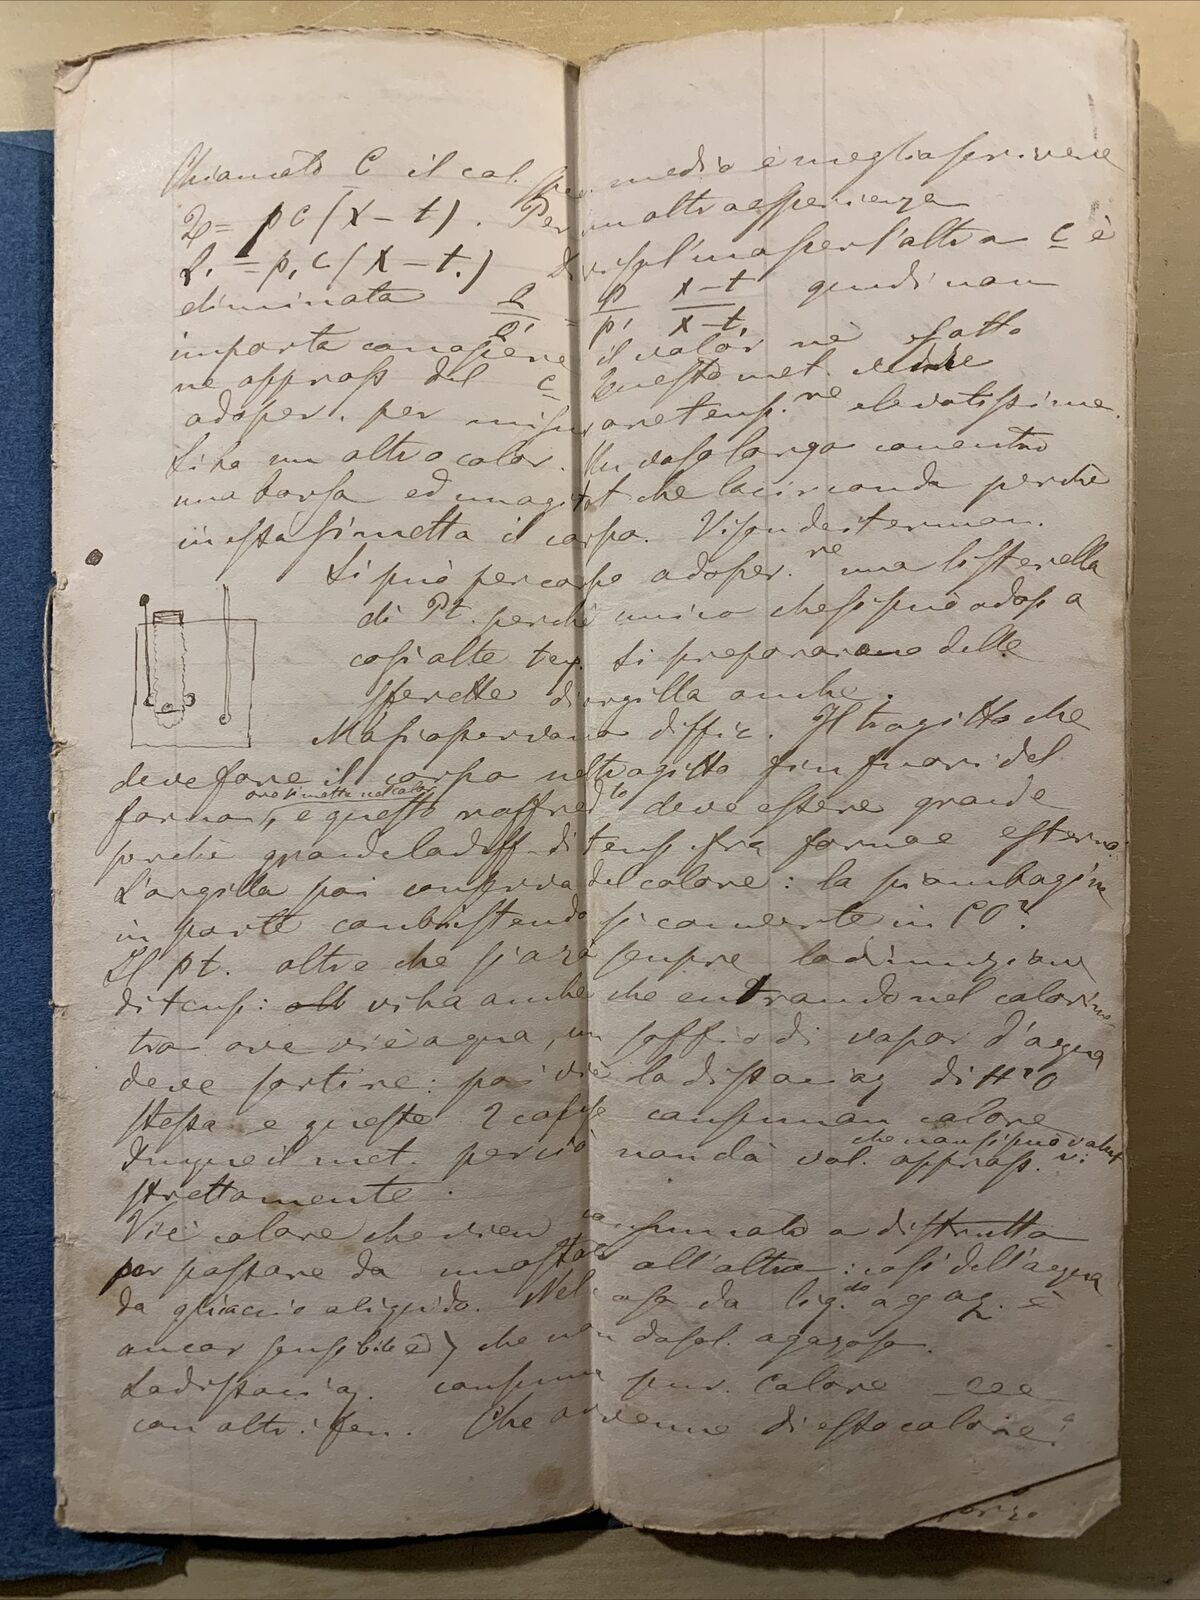 Chiamato C il cal. medio è meglio scrivere
= pc(x-t). Per un altra esperienza
= p, c (x-t,) l'una per l'altra c è
eliminata p/p, x-t/x-t, quindi non
importa conoscere il valor nè
ne appross del c Questo met.
adoper. per misurare temp.re elevatissime.
Si ha un altro calor. Un vaso largo con entro
una borsa ed un agitat che la circonda perchè
in essa si metta il corpo. Vi son due termom.
Si può per corpo adoper.re una listerella
di Pt. perchè unico che si può adop a
così alte tep. Si preparano delle
sferette di argilla anche.
Ma si disperdono diffic. Il tragitto che
deve fare il corpo nel tragitto fin fuori del
ove si mette nel calor
forno, e questo raffred.to deve essere grande
perchè grande la diff. di temp. fra forno e esterno.
L'argilla poi conserva del calore: la piombagine
in parte si converte in CO².
Il pt. oltre che si avrà sempre la diminuzione
di temp: vi ha anche che entrando nel calorim-
tro ove vi è aqua, un soffio di vapor d'aqua
deve sortire: poi vi è la dissociaz di H²O
stessa e queste 2 cause consuman calore
che non si può valut
Dunque il met. perciò non dà val. appross.
strettamente.
Vi è calore che vien consumato o distrutto
per passare da uno stato all'altro: così dell'aqua
da ghiaccio a liquido. Nel da liq.do a gaz. è
ancor sensibile che non da sol. a gazoso.
La dissociaz. consuma pur. calore ecc
con altri fen. Che avvenne di esso calore?